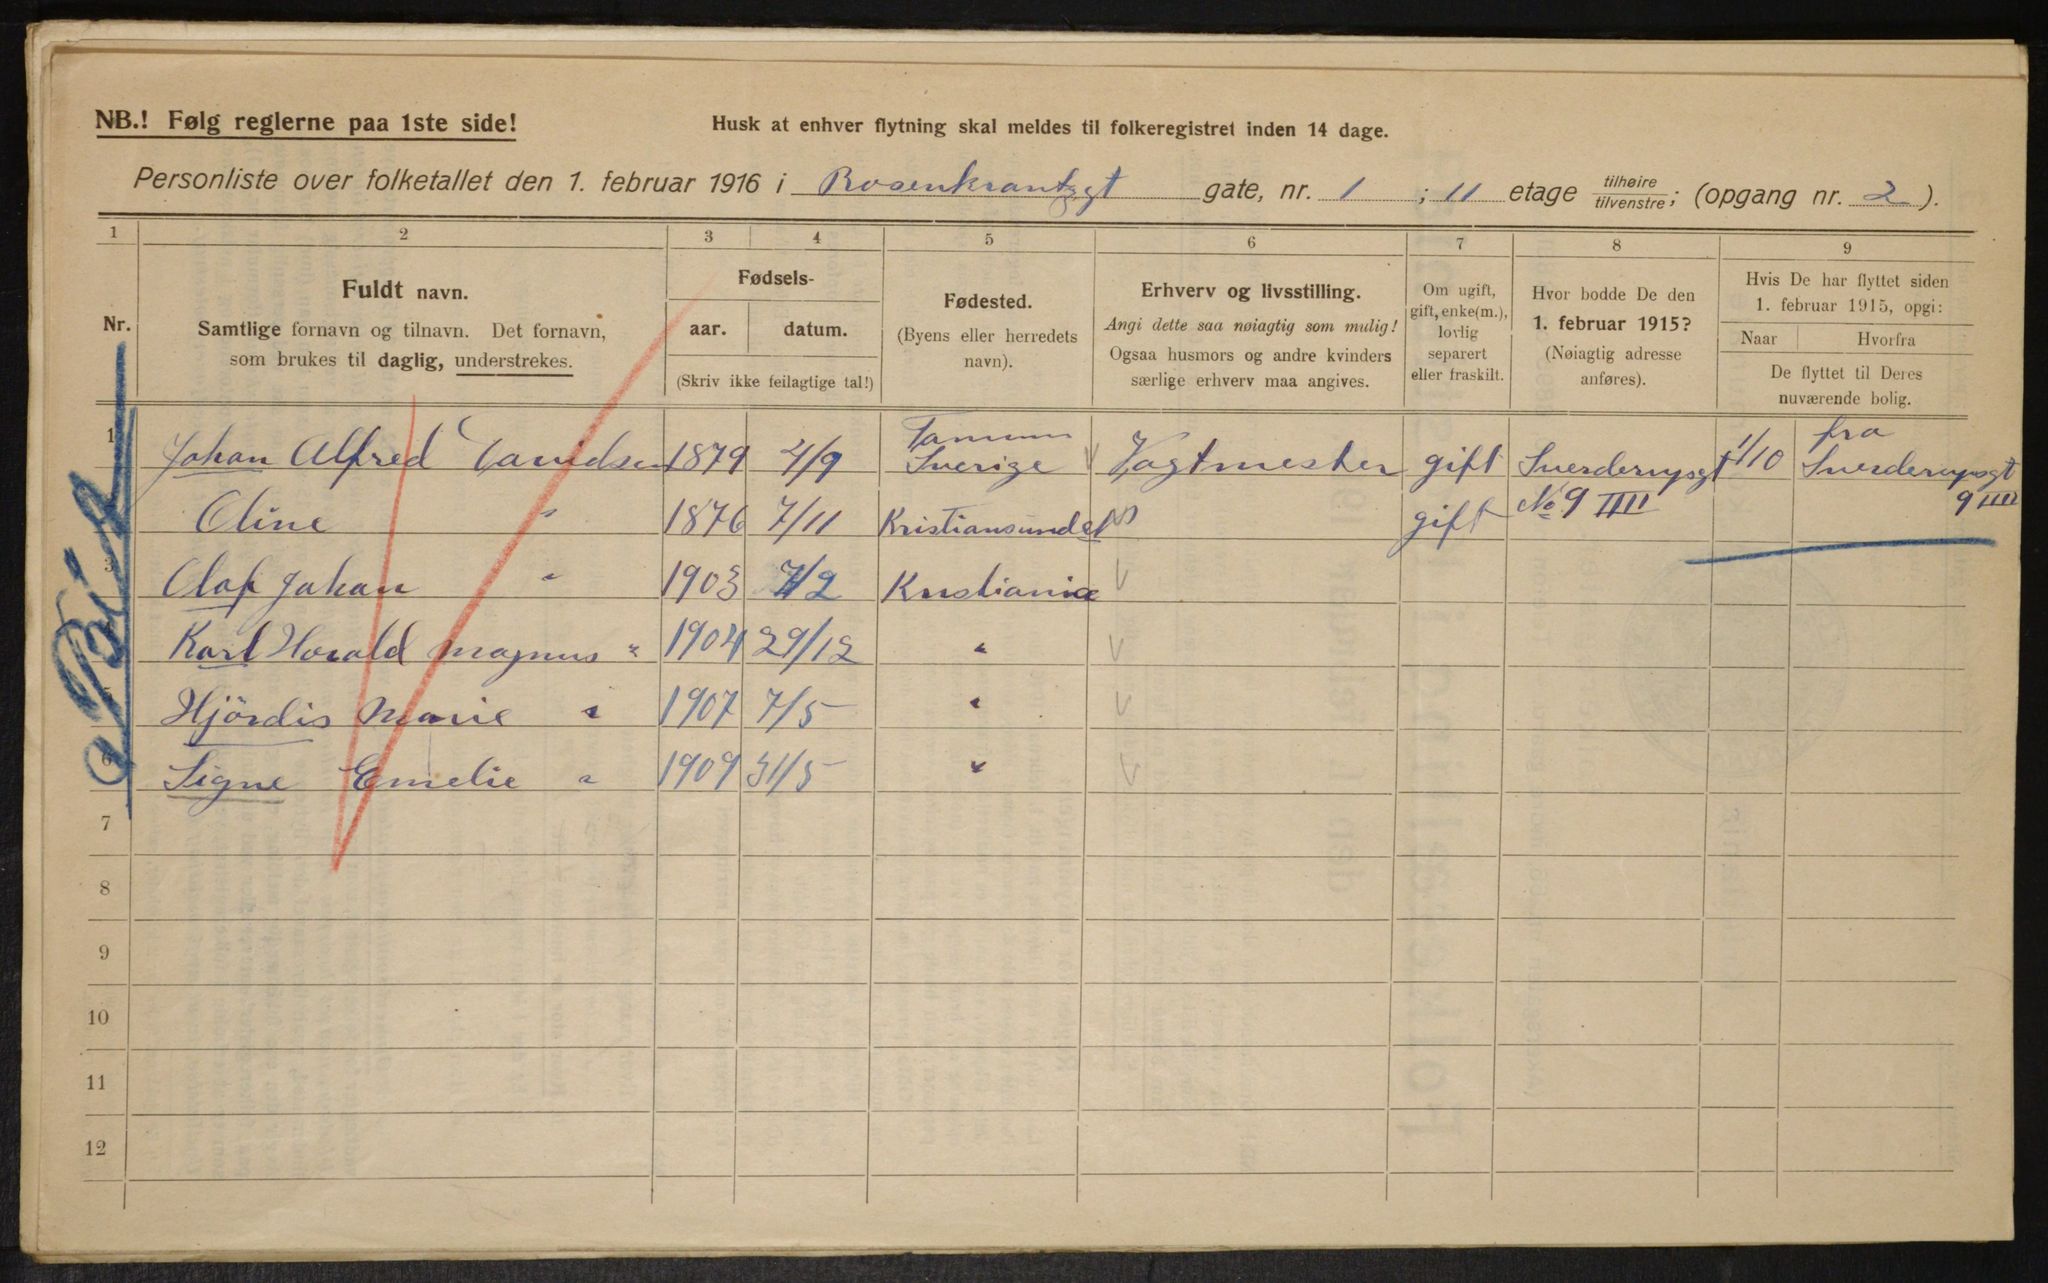 NB.! Følg reglerne paa 1ste side!
Husk at enhver flytning skal meldes til folkeregistret inden 14 dage.
Personliste over folketallet den 1. februar 1916 i Rosenkrantzgt gate, nr. 1 ; 11 etage tilhøire tilvenstre ; (opgang nr. 2 ).
1 2 3 4 5 6 7 8 9
Nr.
Fuldt navn.
Samtlige fornavn og tilnavn. Det fornavn,
som brukes til daglig, understrekes.
Fødsels-
aar. datum.
(Skriv ikke feilagtige tal!)
Fødested.
(Byens eller herredets
navn).
Erhverv og livsstilling.
Angi dette saa nøiagtig som mulig!
Ogsaa husmors og andre kvinders
særlige erhverv maa angives.
Om ugift,
gift, enke(m.),
lovlig
separert
eller fraskilt.
Hvor bodde De den
1. februar 1915?
(Nøiagtig adresse
anføres).
Hvis De har flyttet siden
1. februar 1915, opgi:
Naar Hvorfra
De flyttet til Deres
nuværende bolig.
1 Johan Alfred Davidsen 1879 4/9 Tanum Sverige Vagtmester gift Sverdrupsgt 1/10 fra Sverdrupsgt
Oline " 1876 7/11 Kristiansund gift No 9 IIII 9 IIII
3 Olaf Johan " 1903 7/2 Kristiania
Karl Harald Magnus " 1904 29/12 "
Hjördis Marie " 1907 7/5 "
6 Signe Emelie " 1909 31/5 "
7
8
9
10
11
12